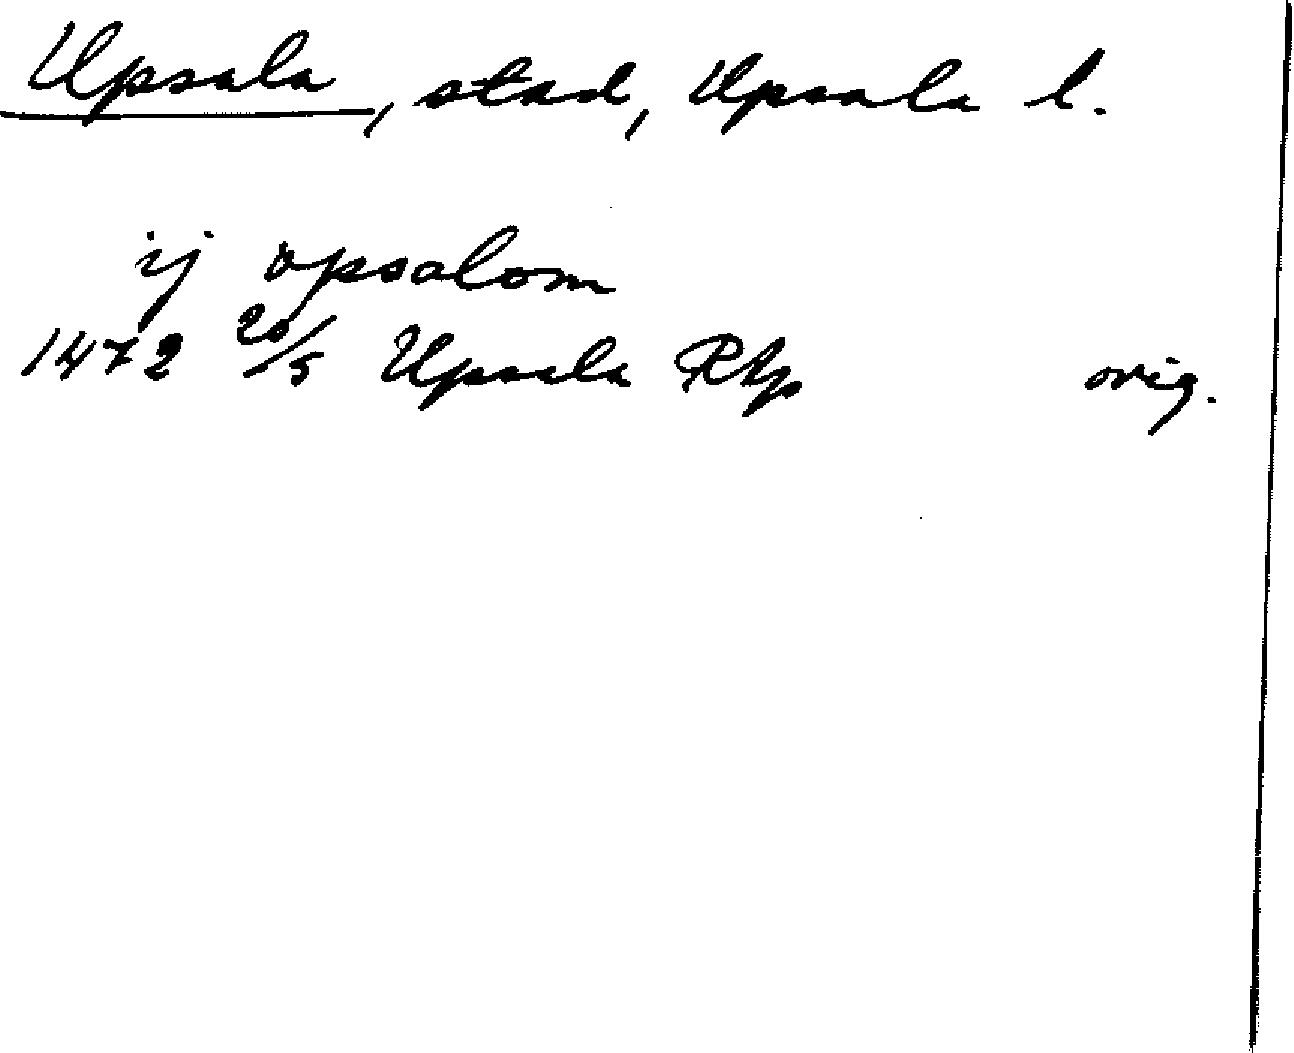 Upsala, stad, Upsala l.
ij opsalom
1472 20/5 Upsala RAp orig.